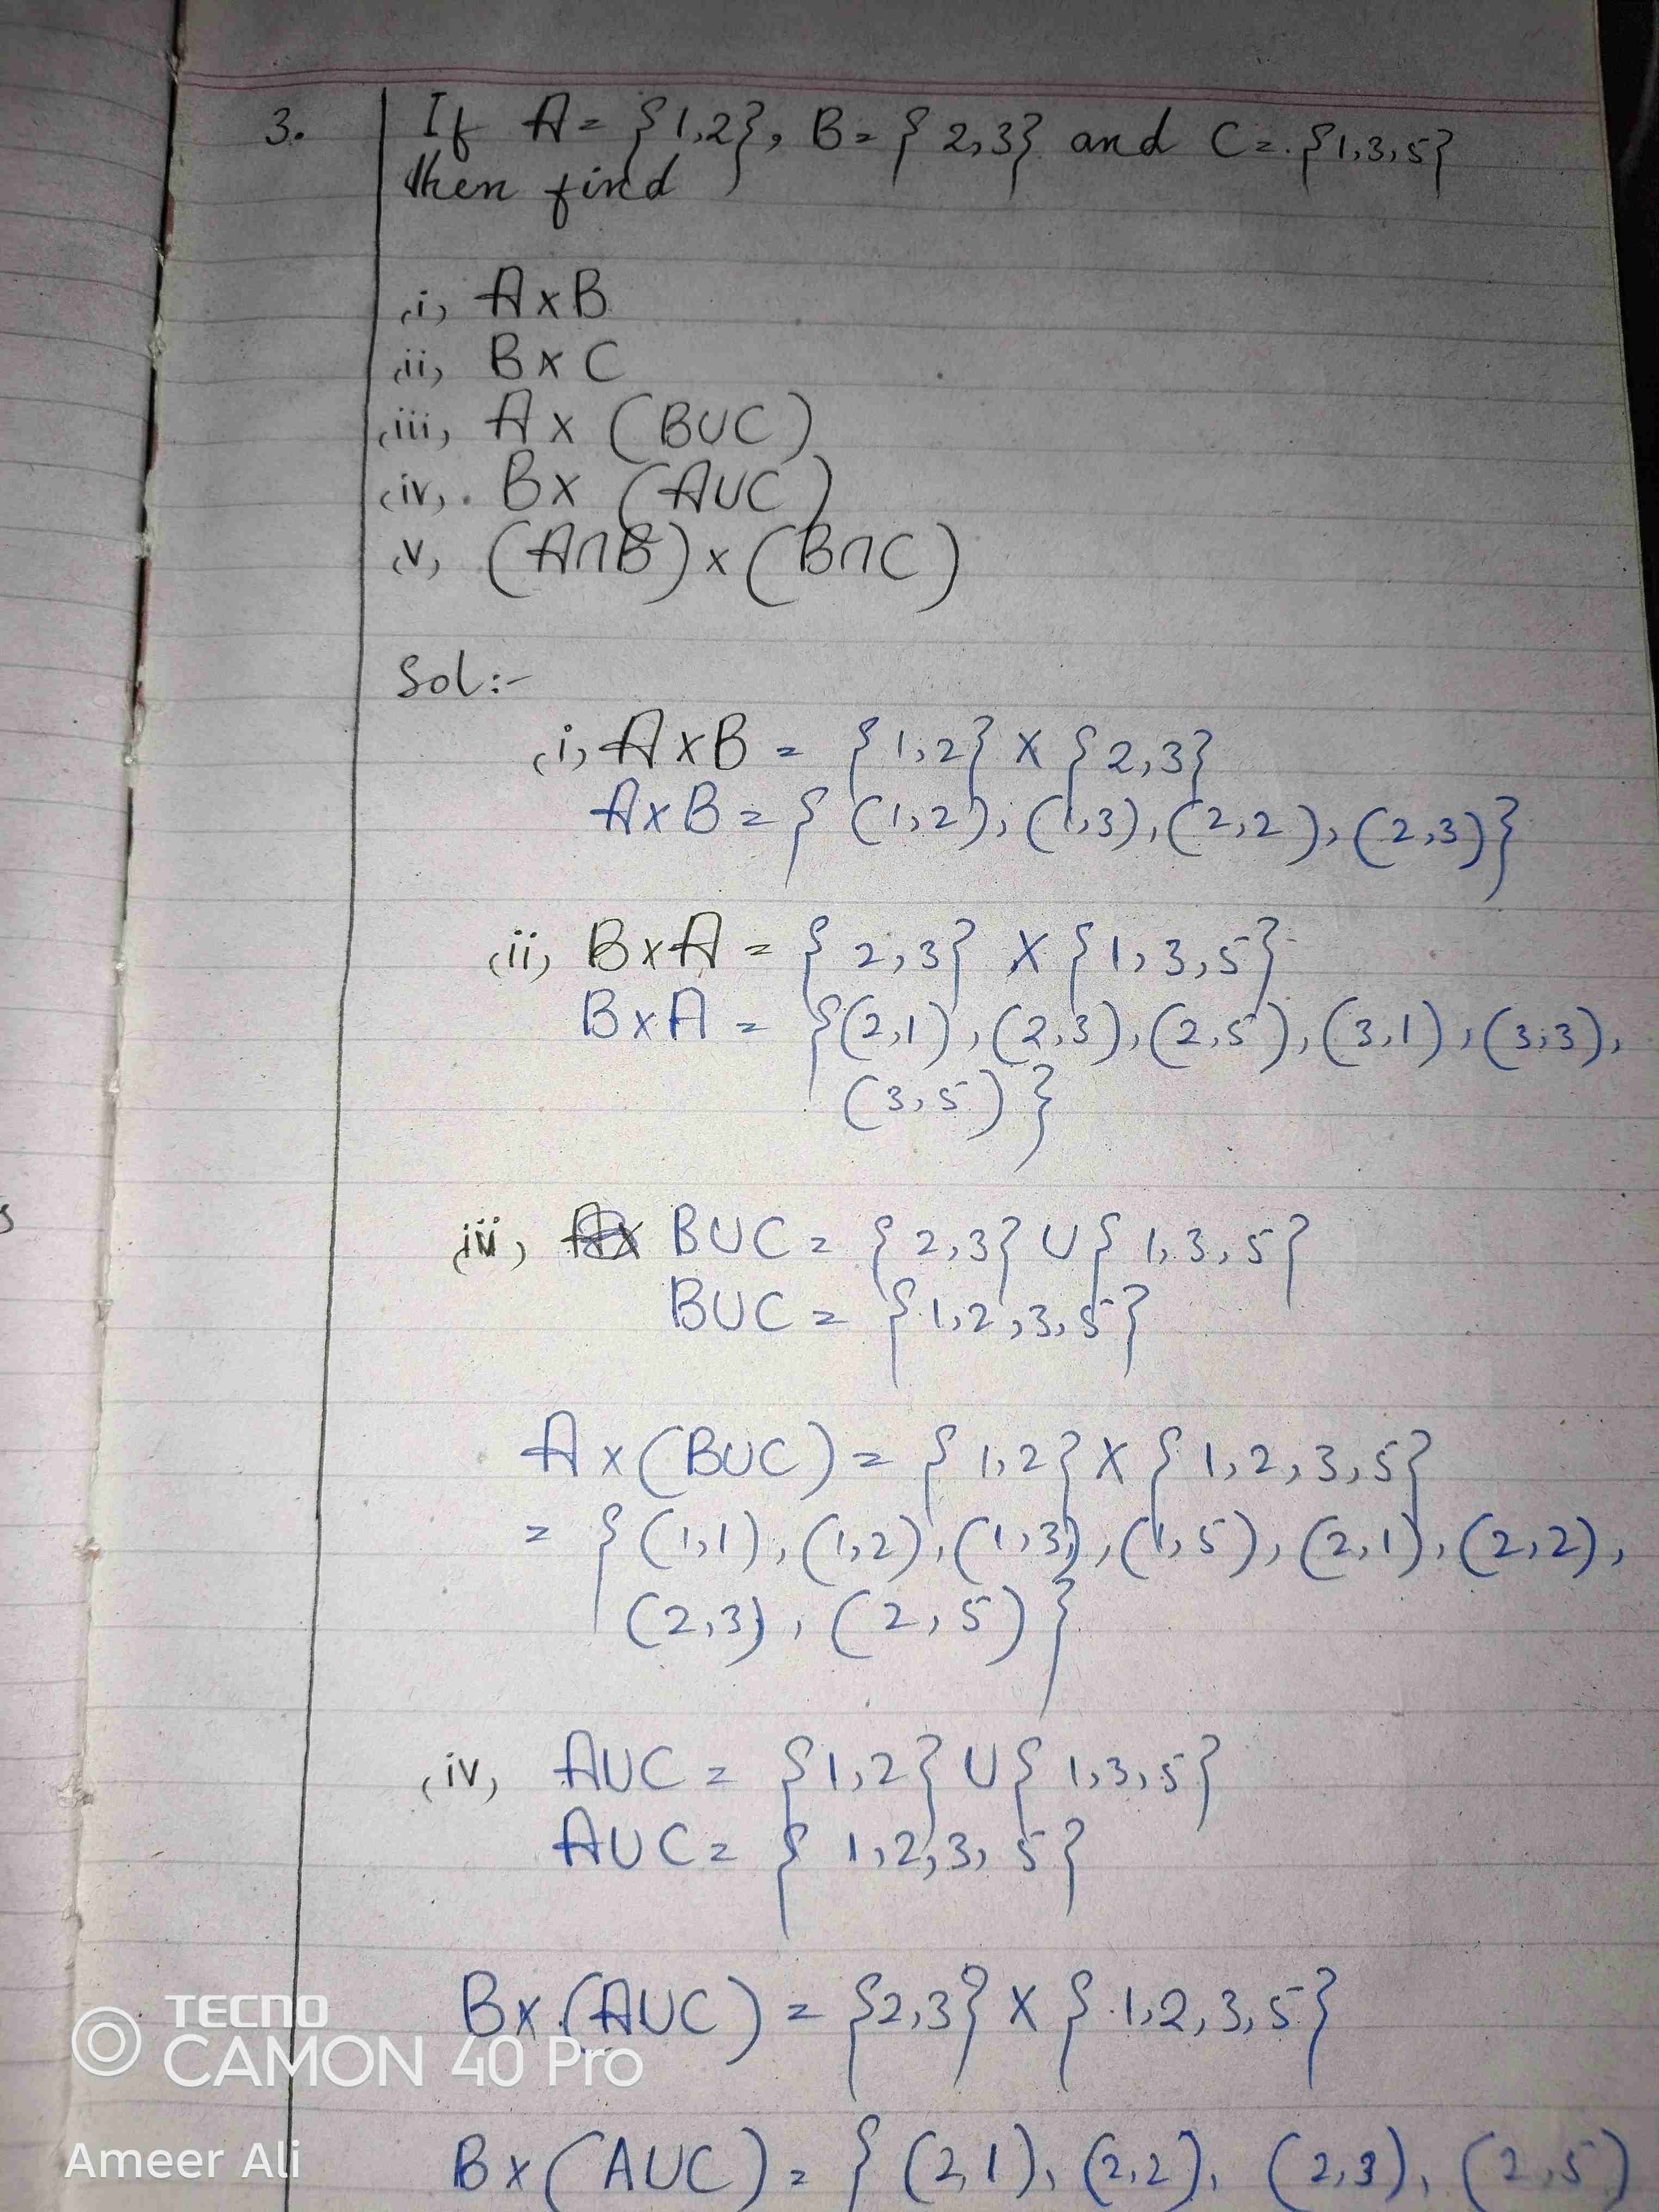 3. If A = {1,2}, B = {2,3} and C = {1,3,5}
then find
(i) A x B
(ii) B x C
(iii) A x (B∪C)
(iv) B x (A∪C)
(v) (A∩B) x (B∩C)
Sol:-
(i) A x B = {1,2} x {2,3}
A x B = { (1,2), (1,3), (2,2), (2,3)}
(ii) B x A = {2,3} x {1,3,5}
B x A = {(2,1), (2,3), (2,5), (3,1), (3,3),
(3,5)}
(iii) B∪C = {2,3} ∪ {1,3,5}
B∪C = {1,2,3,5}
A x (B∪C) = {1,2} x {1,2,3,5}
= {(1,1), (1,2), (1,3), (1,5), (2,1), (2,2),
(2,3), (2,5)}
(iv) A∪C = {1,2} ∪ {1,3,5}
A∪C = {1,2,3,5}
B x (A∪C) = {2,3} x {1,2,3,5}
B x (A∪C) = { (2,1), (2,2), (2,3), (2,5)
TECNO
CAMON 40 Pro
Ameer Ali